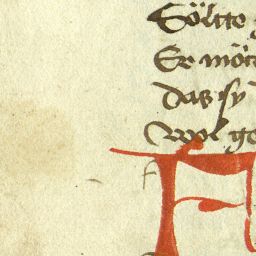 Söltte
Er möcht
Daz sy
Wol ge
f
F